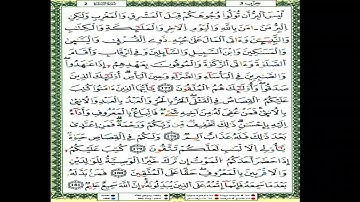 لَّيْسَ ٱلْبِرَّ أَن تُوَلُّوا۟ وُجُوهَكُمْ قِبَلَ ٱلْمَشْرِقِ وَٱلْمَغْرِبِ وَلَٰكِنَّ
ٱلْبِرَّ مَنْ ءَامَنَ بِٱللَّهِ وَٱلْيَوْمِ ٱلْءَاخِرِ وَٱلْمَلَٰٓئِكَةِ وَٱلْكِتَٰبِ
وَٱلنَّبِيِّۦنَ وَءَاتَى ٱلْمَالَ عَلَىٰ حُبِّهِۦ ذَوِى ٱلْقُرْبَىٰ وَٱلْيَتَٰمَىٰ
وَٱلْمَسَٰكِينَ وَٱبْنَ ٱلسَّبِيلِ وَٱلسَّآئِلِينَ وَفِى ٱلرِّقَابِ وَأَقَامَ
ٱلصَّلَوٰةَ وَءَاتَى ٱلزَّكَوٰةَ وَٱلْمُوفُونَ بِعَهْدِهِمْ إِذَا عَٰهَدُوا۟
وَٱلصَّٰبِرِينَ فِى ٱلْبَأْسَآءِ وَٱلضَّرَّآءِ وَحِينَ ٱلْبَأْسِ أُو۟لَٰٓئِكَ ٱلَّذِينَ
صَدَقُوا۟ وَأُو۟لَٰٓئِكَ هُمُ ٱلْمُتَّقُونَ ١٧٧ يَٰٓأَيُّهَا ٱلَّذِينَ ءَامَنُوا۟ كُتِبَ
عَلَيْكُمُ ٱلْقِصَاصُ فِى ٱلْقَتْلَى ٱلْحُرُّ بِٱلْحُرِّ وَٱلْعَبْدُ بِٱلْعَبْدِ وَٱلْأُنثَىٰ
بِٱلْأُنثَىٰ فَمَنْ عُفِىَ لَهُۥ مِنْ أَخِيهِ شَىْءٌ فَٱتِّبَاعٌۢ بِٱلْمَعْرُوفِ وَأَدَآءٌ
إِلَيْهِ بِإِحْسَٰنٍ ذَٰلِكَ تَخْفِيفٌ مِّن رَّبِّكُمْ وَرَحْمَةٌ فَمَنِ ٱعْتَدَىٰ
بَعْدَ ذَٰلِكَ فَلَهُۥ عَذَابٌ أَلِيمٌ ١٧٨ وَلَكُمْ فِى ٱلْقِصَاصِ حَيَوٰةٌ
يَٰٓأُو۟لِى ٱلْأَلْبَٰبِ لَعَلَّكُمْ تَتَّقُونَ ١٧٩ كُتِبَ عَلَيْكُمْ
إِذَا حَضَرَ أَحَدَكُمُ ٱلْمَوْتُ إِن تَرَكَ خَيْرًا ٱلْوَصِيَّةُ لِلْوَٰلِدَيْنِ
وَٱلْأَقْرَبِينَ بِٱلْمَعْرُوفِ حَقًّا عَلَى ٱلْمُتَّقِينَ ١٨٠ فَمَنۢ بَدَّلَهُۥ
بَعْدَمَا سَمِعَهُۥ فَإِنَّمَآ إِثْمُهُۥ عَلَى ٱلَّذِينَ يُبَدِّلُونَهُۥٓ إِنَّ ٱللَّهَ سَمِيعٌ عَلِيمٌ ١٨١